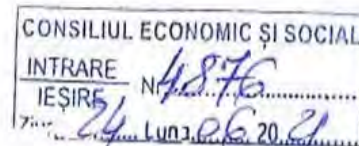 CONSILIUL ECONOMIC ȘI SOCIAL
INTRARE
IEȘIRE
Nr. 4876
Ziua 24 Luna 06 20 21